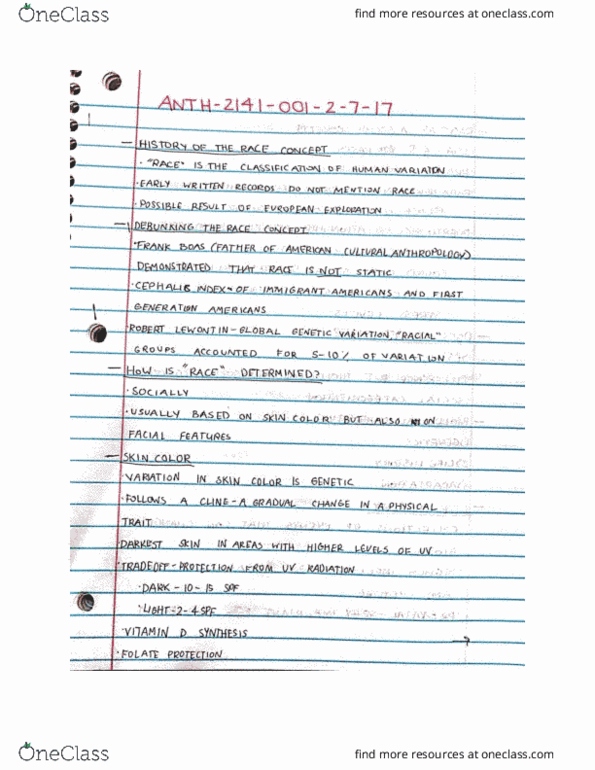 OneClass
find more resources at oneclass.com
ANTH-2141-001-2-7-17
- HISTORY OF THE RACE CONCEPT
· "RACE" IS THE CLASSIFICATION OF HUMAN VARIATION
· EARLY WRITTEN RECORDS DO NOT MENTION RACE
· POSSIBLE RESULT OF EUROPEAN EXPLORATION
- DEBUNKING THE RACE CONCEPT
· FRANK BOAS (FATHER OF AMERICAN CULTURAL ANTHROPOLOGY)
DEMONSTRATED THAT RACE IS NOT STATIC
· CEPHALIC INDEX - OF IMMIGRANT AMERICANS AND FIRST
GENERATION AMERICANS
· ROBERT LEWONTIN - GLOBAL GENETIC VARIATION "RACIAL"
GROUPS ACCOUNTED FOR 5-10% OF VARIATION
- HOW IS "RACE" DETERMINED?
· SOCIALLY
· USUALLY BASED ON SKIN COLOR, BUT ALSO ON
FACIAL FEATURES
- SKIN COLOR
· VARIATION IN SKIN COLOR IS GENETIC
· FOLLOWS A CLINE - A GRADUAL CHANGE IN A PHYSICAL
TRAIT
· DARKEST SKIN IN AREAS WITH HIGHER LEVELS OF UV
· TRADEOFF - PROTECTION FROM UV RADIATION
· DARK - 10 - 15 SPF
· LIGHT - 2 - 4 SPF
· VITAMIN D SYNTHESIS →
· FOLATE PROTECTION
OneClass
find more resources at oneclass.com